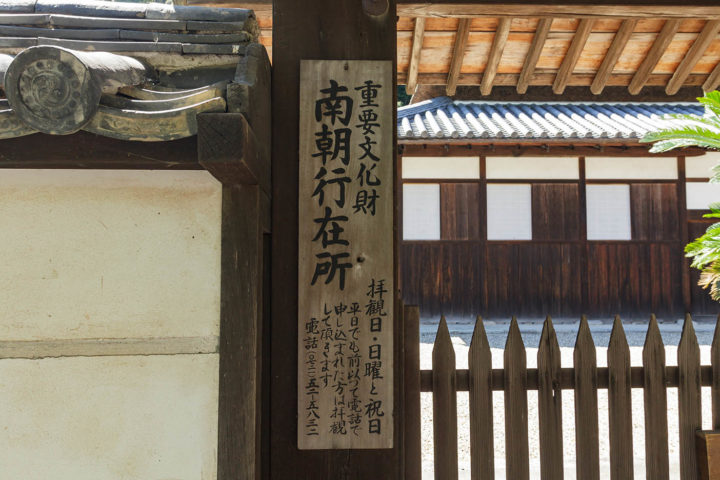 重要文化財
南朝行在所
拝観日・日曜と祝日
平日でも前以つて電話で
申し込まれた方は拝観
して頂きます
電話(〇七二一)五二五八三二